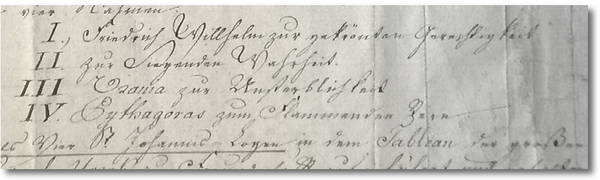 vier Nahmen.
I., Friedrich Willhelm zur gekrönten Gerechtigkeit
II zur Siegenden Wahrheit.
III Urania zur Unsterblichkeit
IV. Pythagoras zum Flammenden Stern
Vier St Johannis-Logen in dem Tableau der großen